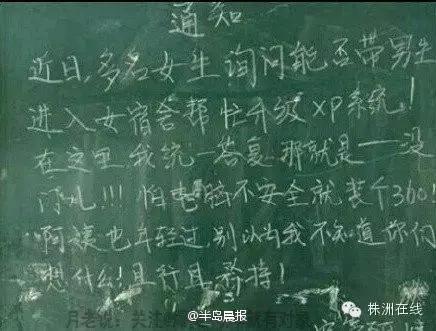 通知
近日,多名女生询问能否带男生
进入女宿舍帮忙升级XP系统!
在这里我统一答复那就是——没
门儿!!!怕电脑不安全就装个360!
阿姨也年轻过,别以为我不知道你们
想什么!且行且珍惜!
@半岛晨报
株洲在线